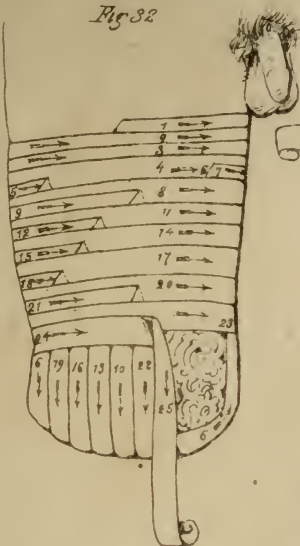 Fig 32
1
2
3
4 6 7
5 8
9
11
12 14
15
17
18 20
21
23
24
6 19 16 13 10 22
25
6